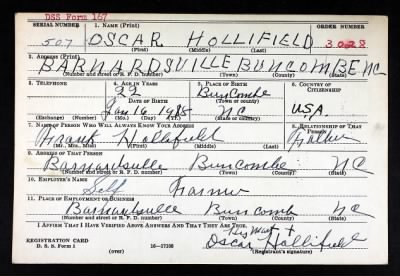 DSS Form 167
SERIAL NUMBER 1. NAME (Print) ORDER NUMBER
507 OSCAR HOLLIFIELD
(First) (Middle) (Last)
2. ADDRESS (Print)
BARNARDSVILLE BUNCOMBE NC
(Number and street or R. F. D. number) (Town) (County) (State)
3. TELEPHONE 4. AGE IN YEARS 5. PLACE OF BIRTH 6. COUNTRY OF CITIZENSHIP
22 Buncombe
DATE OF BIRTH (Town or county)
Jan 16 NC USA
(Exchange) (Number) (Mo.) (Day) (Yr.) (State or country)
7. NAME OF PERSON WHO WILL ALWAYS KNOW YOUR ADDRESS 8. RELATIONSHIP OF THAT PERSON
Frank Hollifield Father
(Mr., Mrs., Miss) (First) (Middle) (Last)
9. ADDRESS OF THAT PERSON
Barnardsville Buncombe NC
(Number and street or R. F. D. number) (Town) (County) (State)
10. EMPLOYER'S NAME
Self Farmer
11. PLACE OF EMPLOYMENT OR BUSINESS
Barnardsville Buncomb NC
(Number and street or R. F. D. number) (Town) (County) (State)
I AFFIRM THAT I HAVE VERIFIED ABOVE ANSWERS AND THAT THEY ARE TRUE.
his mark +
REGISTRATION CARD
D. S. S. Form 1 (over) 16—17105 Oscar Hollifield